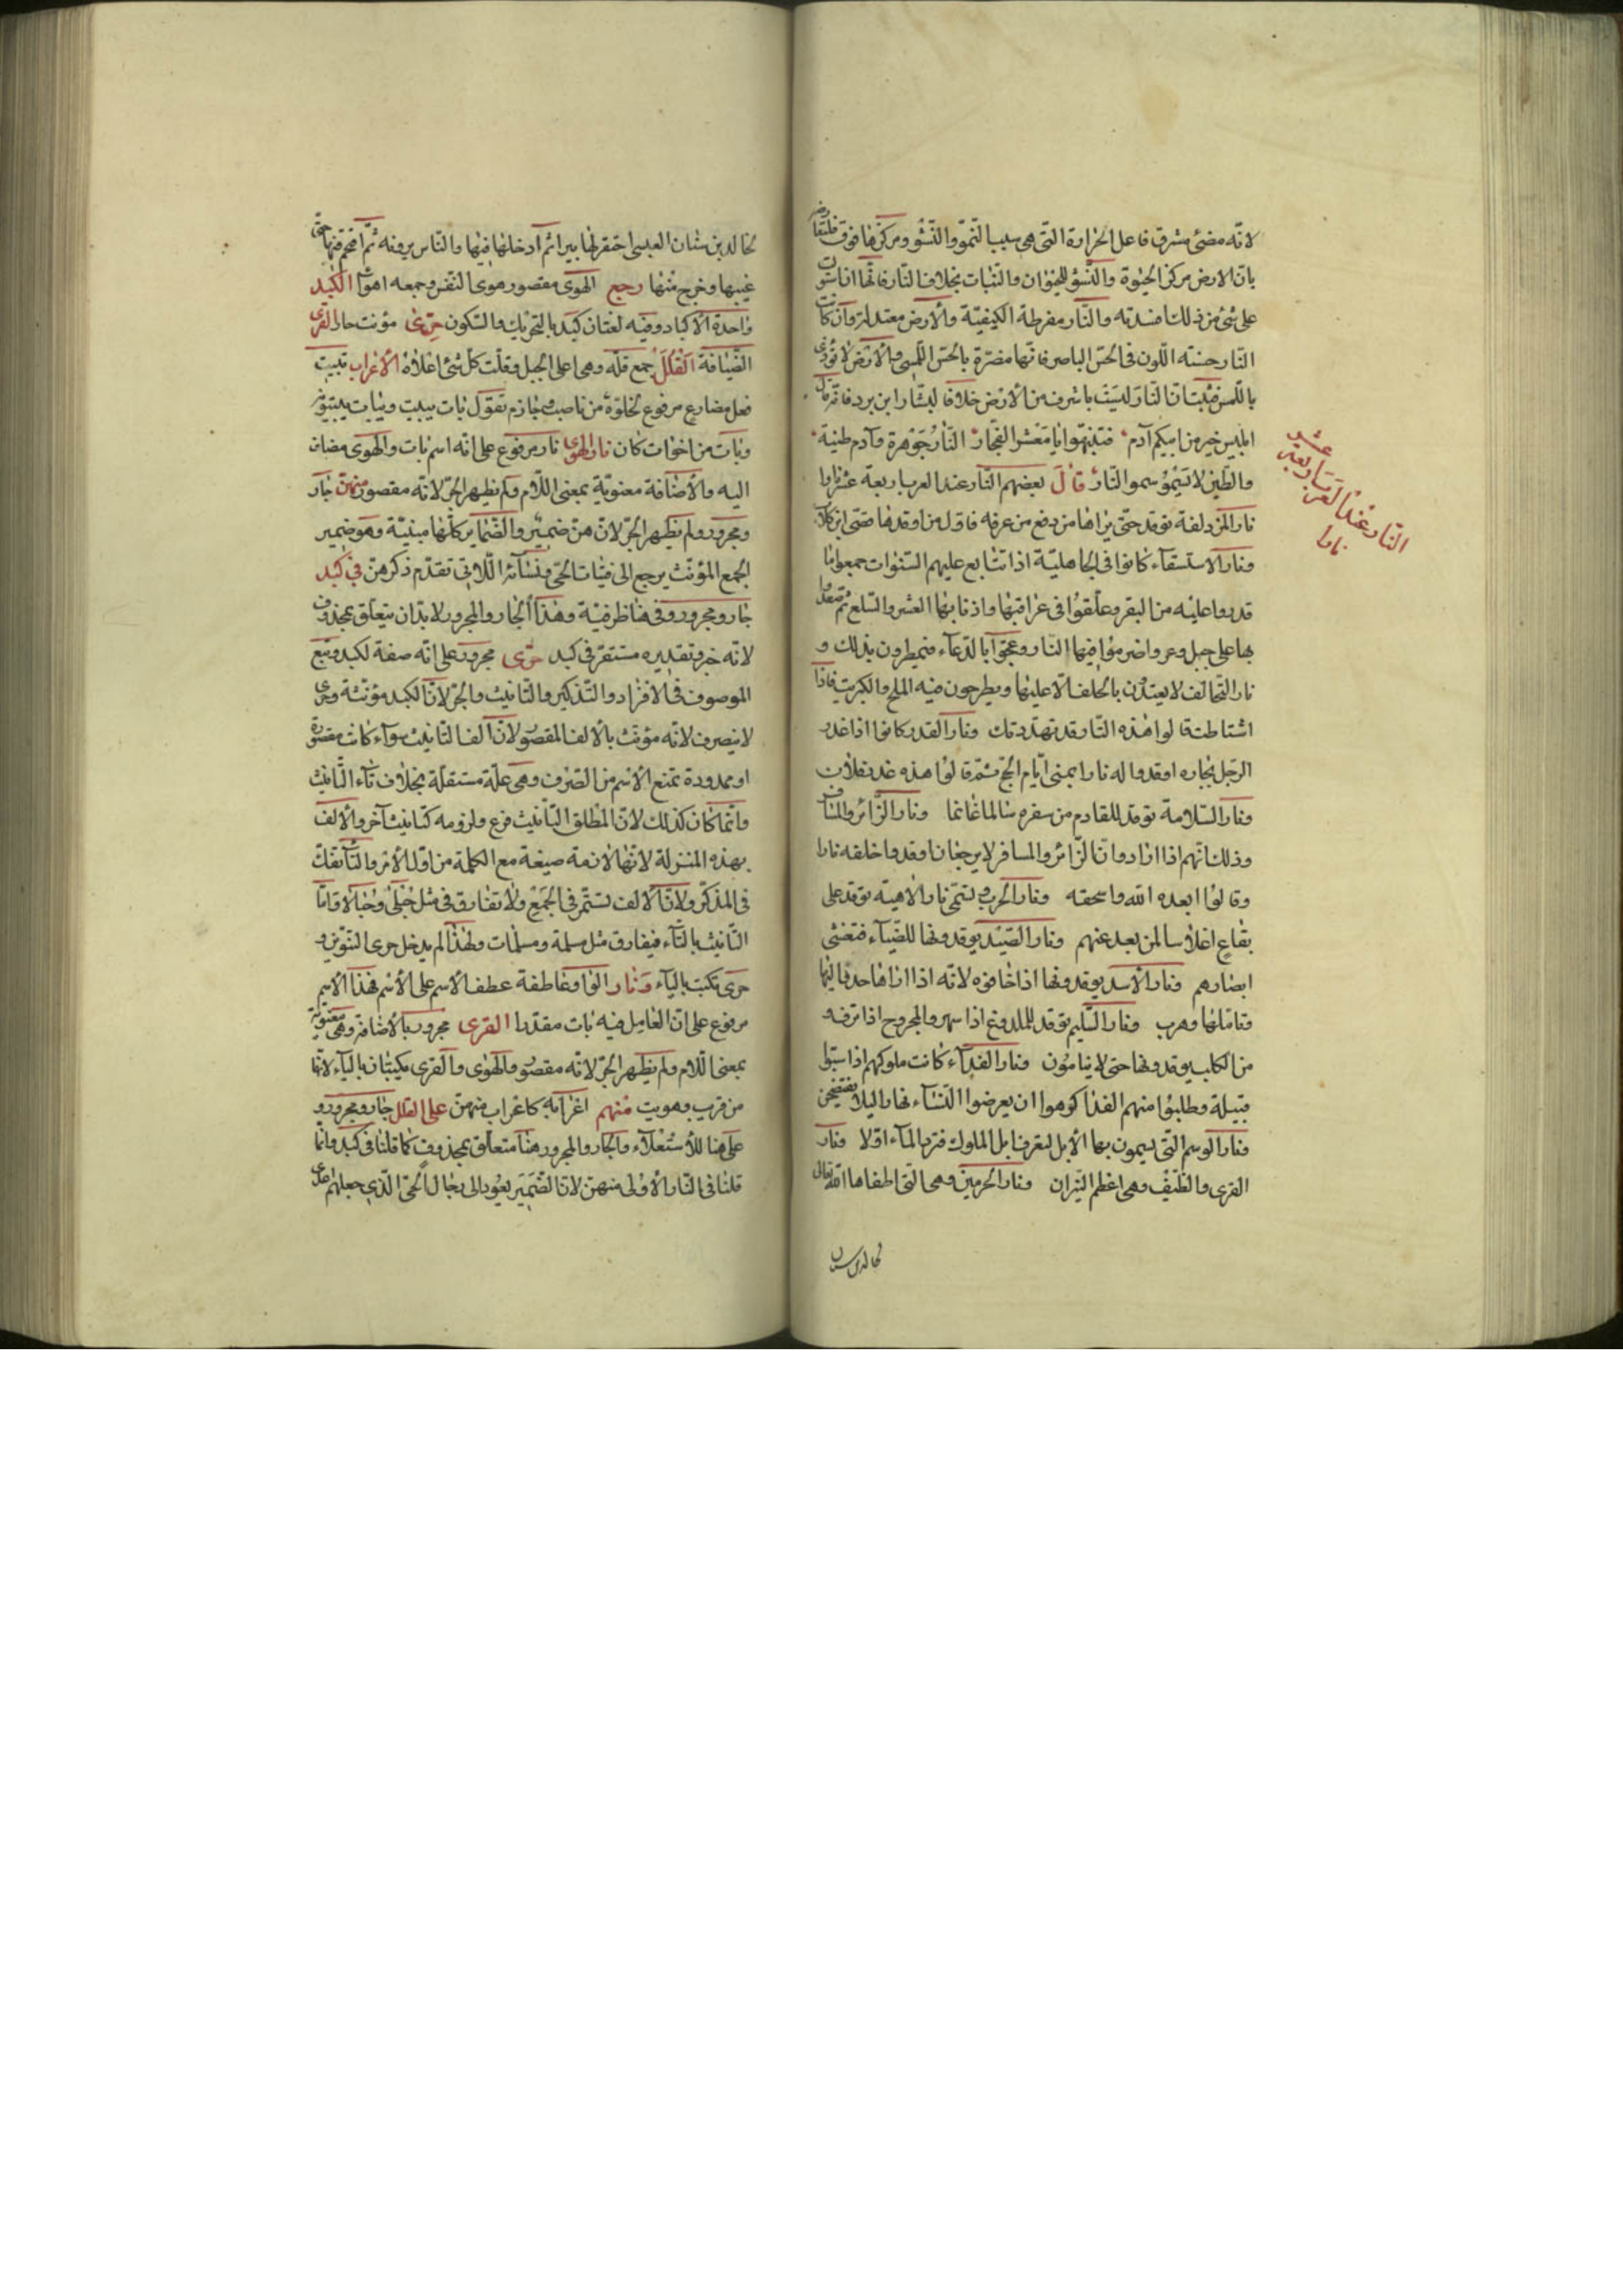 لانه مضئ مشرق فاعل الحرارة التى هى سبب النمو والنشو ومركزها فوق فلنقا
بان الارض مركز الحيوة والنشؤ للحيوان والنبات بخلاف النار فانها اذا استولت
على شئ من ذلك افسدته والنار مفرطة الكيفية والأرض معتدلة وان كانت
النار حسنة اللون فى الحس الباصر فانها مضرة بالحس اللمسى والأرض لا تؤذى
باللمس فثبت ان النار ليست باشرف من الأرض خلافا لبشار ابن برد فانه قال
ابليس خير من ابيكم آدم فتنبهوا يا معشر الفجار النار جوهرة وآدم طينة
والطين لا يسمو سمو النار قال بعضهم النار عند العرب اربعة عشر نارا
نار المزدلفة توقد حتى يراها من دفع من عرفه فاول من اوقدها قصى ابن كلاب
ونار الاستسقاء كانوا فى الجاهلية اذا تتابع عليهم السنوات جمعوا ما
قدروا عليه من البقر وعلقوا فى عراقبها واذنابها العشر والسلع ثم صعدوا
بها على جبل وعر واضرموا فيها النار وعجوا بالدعاء فيمطرون بذلك و
نار التحالف لا يعتدون بالحلف الا عليها ويطرحون فيه الملح والكبريت فاذا
اشتاطت قالوا هذه النار قد تهددتك ونار الغدر كانوا اذا غدر
الرجل بجاره اوقدوا له نارا بمنى ايام الحج ثم قالوا هذه غدرة فلان
ونار السلامة توقد للقادم من سفره سالما غانما ونار الزائر والمسافر
وذلك انهم اذا ارادوا ان الزائر والمسافر لا يرجعان اوقدوا خلفه نارا
وقالوا ابعده الله واسحقه ونار الحرب وتسمى نار الاهبة توقد على
بقاع اعلاما لمن بعد عنهم ونار الصيد يوقدونها للضباء فتغشى
ابصارهم ونار الأسد يوقدونها اذا خافوه لانه اذا راها حدق اليها
وتاملها وهرب ونار السليم توقد للملدوغ اذا سهر والمجروح اذا نزف و
من الكلب يوقدونها حتى لا يناموا ونار الفداء كانت ملوكهم اذا سبوا
قبيلة وطلبوا منهم الفدا كرهوا ان يعرضوا النساء نهارا ليلا يفتضحن
ونار الوسم التى يسمون بها الأبل لتعرف ابل الملوك فترد الماء اولا ونار
القرى والضيف وهى اعظم النيران ونار الحرمين وهى التى اطفاها الله تعالى
خالد بن سنان
النار عند العرب اربعة عشر
نارا
خالد بن سنان العبسى احتفر لها بيرا ثم ادخلها فيها والناس يرونه ثم اقتحم فيها حتى
غيبها وخرج منها رجع الهوى مقصور هوى النفس وجمعه اهواء الكبد
واحدة الأكباد وفيه لغتان كبد بالتحريك والسكون حرى مؤنث حار القرى
الضيافة القلل جمع قلة وهى اعلى الجبل وقلت كل شئ اعلاه الأعراب تبيت
فعل مضارع مرفوع لخلوه من ناصب وجازم تقول بات يبيت ويبات بيتوتة
وبات من اخوات كان نار الهوى نار مرفوع على انه اسم بات والهوى مضاف
اليه والأضافة معنوية بمعنى اللام ولم يظهر الجر لانه مقصور منهن جار
ومجرور ولم يظهر الجر لان هن ضمير والضماير كلها مبنية وهو ضمير
الجمع المؤنث يرجع الى فتيات الحى ونسائه اللاتى تقدم ذكرهن فى كبد
جار ومجرور وفى هنا ظرفية وهذا الجار والمجرور لا بد ان يتعلق بمحذوف
لانه خبر وتقديره مستقر فى كبد حرى مجرور على انه صفة لكبد وتبع
الموصوف فى الافراد والتذكير والتانيث والجر لان الكبد مؤنثة وحرى
لا ينصرف لانه مؤنث بالألف المقصور لان الف التانيث سواء كانت مقصورة
او ممدودة تمنع الأسم من الصرف وهى علة مستقلة بخلاف تاء التانيث
وانما كان كذلك لان المطلق التأنيث فرع ولزومه كتانيث آخر والألف
بهذه المنزلة لانها لازمة صيغة مع الكلمة من اول الأمر والتاء تفك
فى المذكر ولان الألف تستمر فى الجمع ولا تفارق فى مثل حبلى وحبالا فاما
التانيث بالتاء فيفارق مثل مسلمة ومسلمات ولهذا لم يدخل حرى التنوين و
حرى تكتب بالياء ونار الواو عاطفة عطف الأسم على الأسم فهذا الأسم
مرفوع على ان العامل فيه بات مقدرا القرى مجرور بالأضافة وهى معنوية
بمعنى اللام ولم يظهر الجر لانه مقصور والهوى والقرى يكتبان بالياء لانها
من قريت وهويت منهم اعرابه كاعراب منهن على القلل جار ومجرور و
على هنا للأستعلاء والجار والمجرور هنا متعلق بمحذوف كما قلنا فى كبد وانما
قلنا فى النار الأولى منهن لان الضمير يعود الى رجال الحى الذى جعلهم